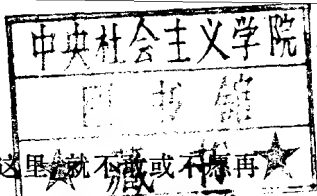 中央社会主义学院
图书馆
藏书
这里，就不敢或不愿再